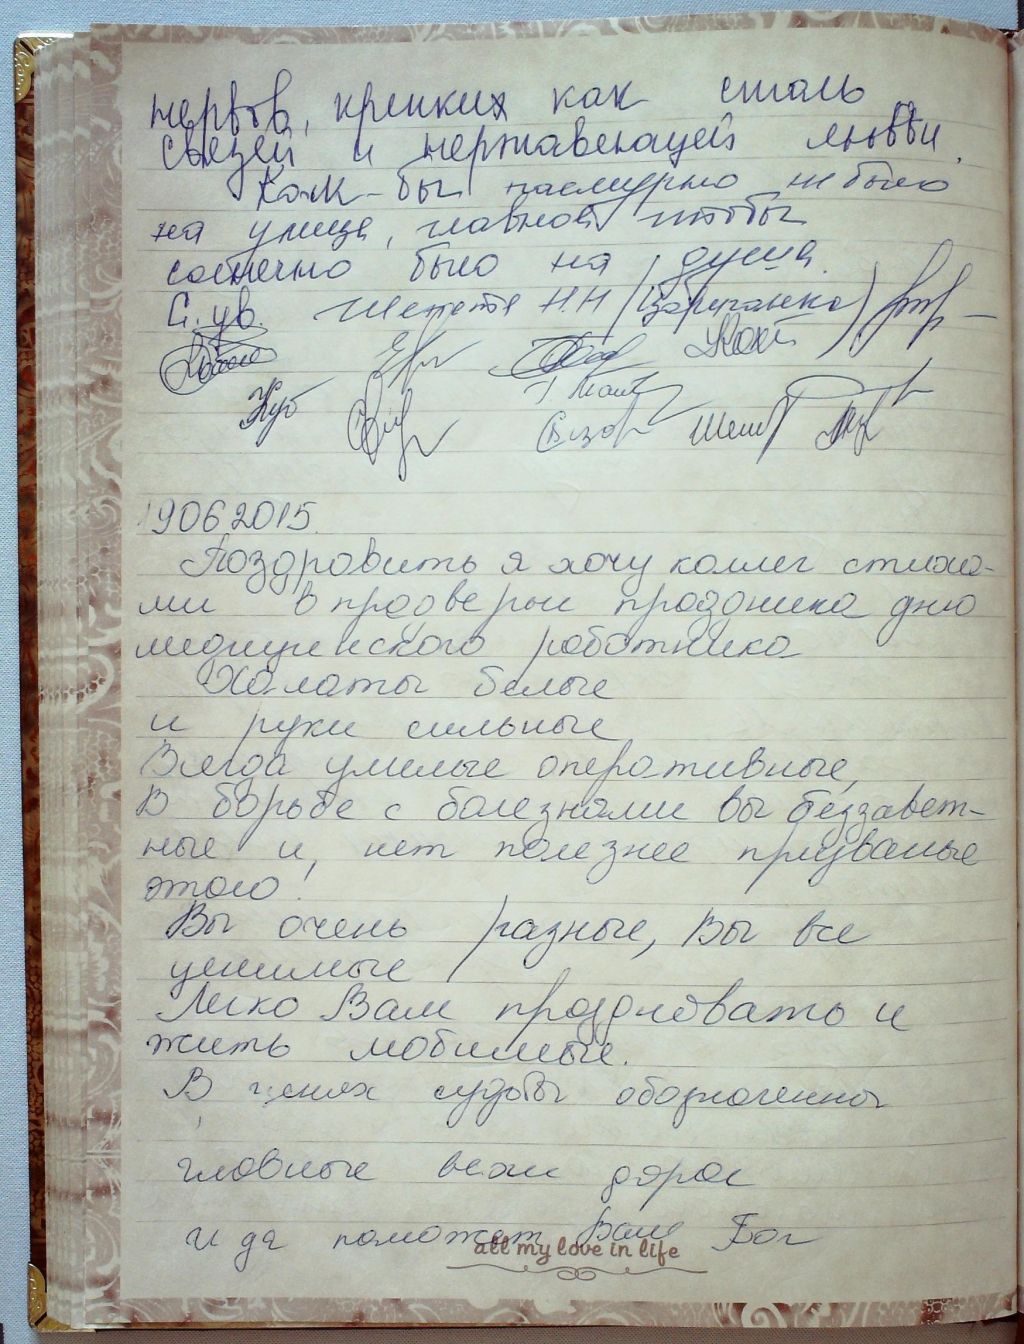 нервов, крепких как сталь
связей и нержавеющей любви.
Как-бы пасмурно не было
на улице, главное чтобы
солнечно было на душе.
С. ув. Н.Н
19062015.
Поздровить я хочу коллег стиха-
ми в продверьи проздника дню
медицинского работника
Халаты белые
и руки сильные
Всегда умелые оперативные,
В борьбе с болезнями вы беззавет-
ные и, нет полезнее призванье
этого!
Вы очень разные, Вы все
ценимые
Легко Вам проздновать и
жить любимые.
В судьбы обозначены
главные вехи дорог
и да поможет Вам Бог
all my love in life